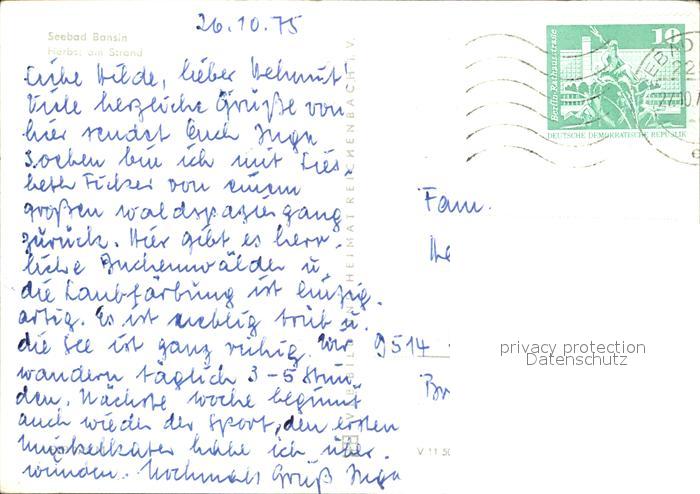 26.10.75
Seebad Bansin
Herbst am Strand
Liebe Hilde, lieber Helmut!
Viele herzliche Grüße von
hier sendet Euch Inga
Soeben bin ich mit Lies-
beth Ficker von einem
großen Waldspaziergang
zurück. Hier gibt es herr-
liche Buchenwälder u.
die Laubfärbung ist einzig-
artig. Es ist neblig trüb u.
die See ist ganz ruhig. Wir
wandern täglich 3-5 Stun-
den. Nächste Woche beginnt
auch wieder der Sport, den ersten
Muskelkater habe ich über-
wunden. Nochmals Gruß Inga
10
Berlin-Rathausstraße
DEUTSCHE DEMOKRATISCHE REPUBLIK
Fam.
9514
privacy protection
Datenschutz
V 11 50